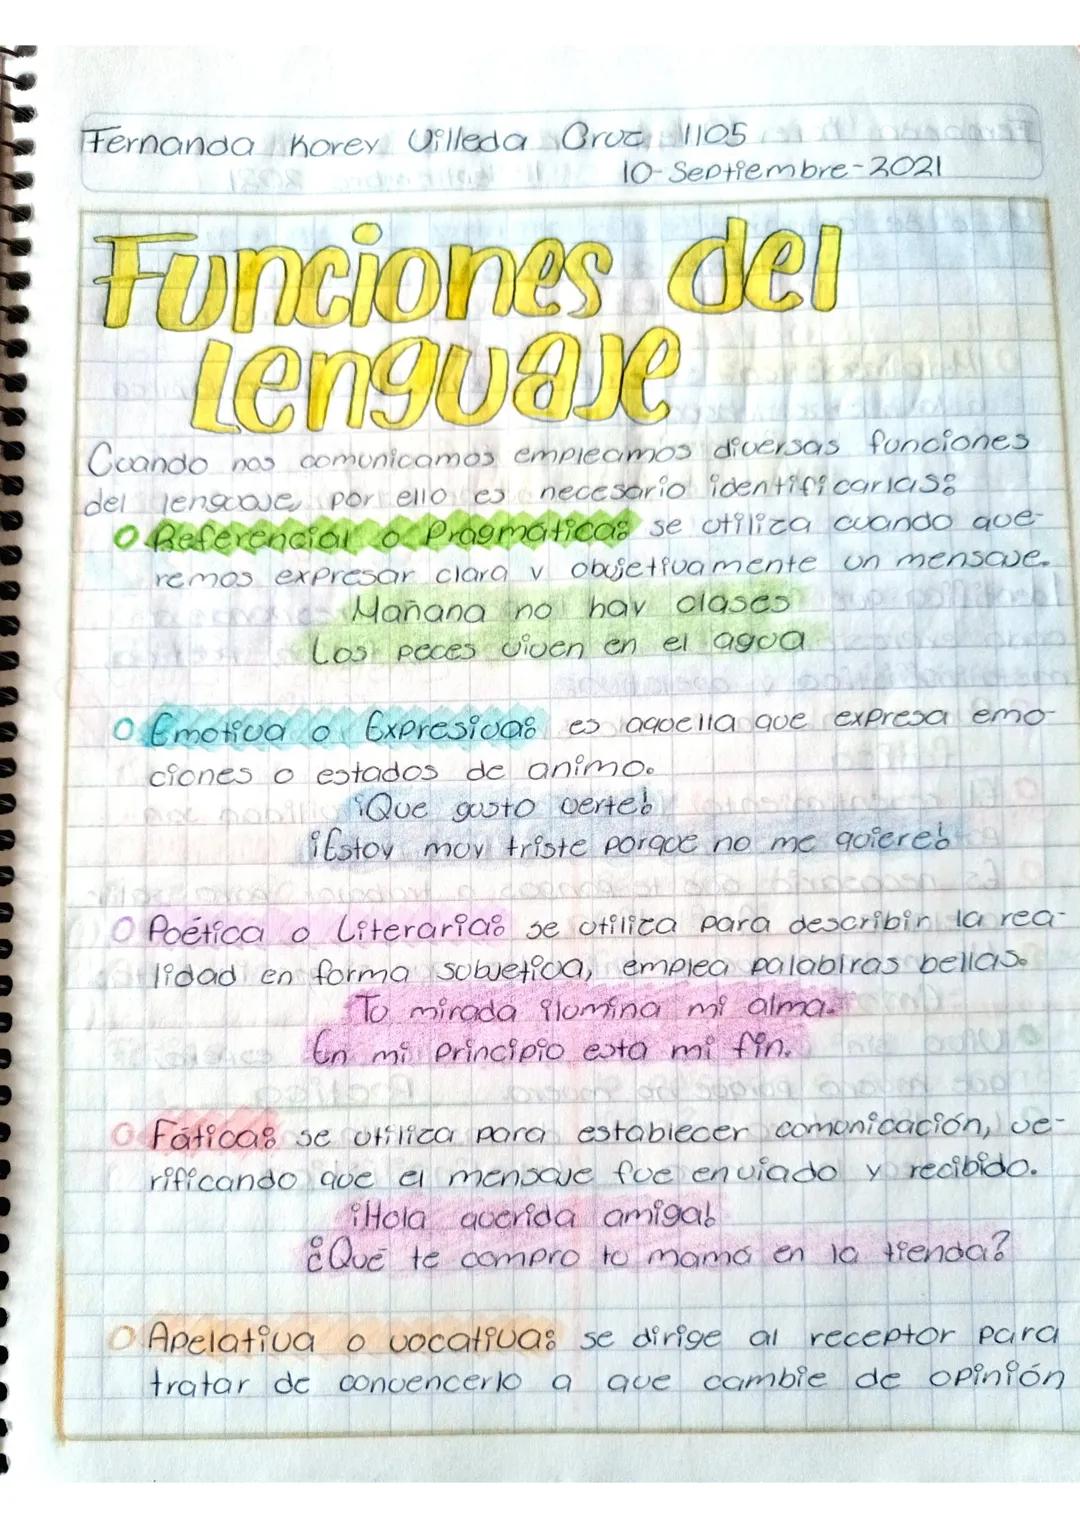 Fernanda Korey Villeda Cruz 1105
10-Septiembre-2021
Funciones del
Lenguaje
Cuando nos comunicamos empleamos diversas funciones
del lenguaje, por ello es necesario identificarlas:
O Referencial o Pragmática: se utiliza cuando que-
remos expresar clara y objetivamente un mensaje.
Mañana no hay clases
Los peces viven en el agua
O Emotiva o Expresiva: es aquella que expresa emo-
ciones o estados de animo.
¡Que gusto verte!
¡Estoy muy triste porque no me quiere!
O Poética o Literaria: se utiliza para describir la rea-
lidad en forma subjetiva, emplea palabras bellas.
Tu mirada ilumina mi alma.
En mi principio esta mi fin.
O Fática: se utiliza para establecer comunicación, ve-
rificando que el mensaje fue enviado y recibido.
¡Hola querida amiga!
¿Qué te compro tu mamá en la tienda?
O Apelativa o vocativa: se dirige al receptor para
tratar de convencerlo a que cambie de opinión